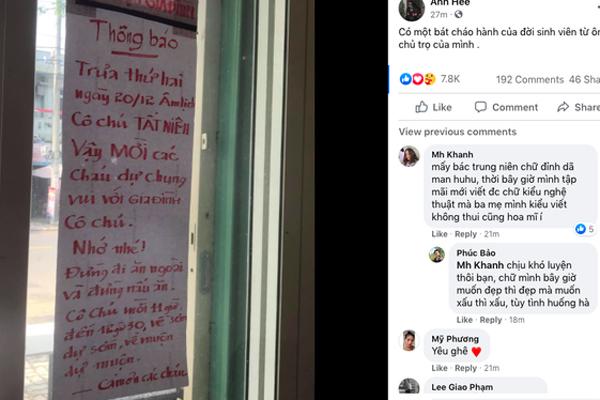 Thông báo
Trưa thứ hai
ngày 20/12 Âm lịch
Cô chú TẤT NIÊN
Vậy MỜI các
Cháu dự chung
VUI VỚI GIA ĐÌNH
Cô chú.
Nhớ nhé!
Đừng đi ăn ngoài
và đừng nấu ăn.
Cô Chú mời 11 giờ
đến 12g30, về sớm
dự sớm, về muộn
dự muộn.
Cám ơn các cháu
Anh Hee
27m
Có một bát cháo hành của đời sinh viên từ
chủ trọ của mình .
7.8K
192 Comments
Like
Comment
Share
View previous comments
Mh Khanh
mấy bác trung niên chữ đỉnh dã
man huhu, thời bây giờ mình tập
mãi mới viết đc chữ kiểu nghệ
thuật mà ba mẹ mình kiểu viết
không thui cũng hoa mĩ í
Like · Reply · 21m
5
Phúc Bảo
Mh Khanh chịu khó luyện
thôi bạn, chữ mình bây giờ
muốn đẹp thì đẹp mà muốn
xấu thì xấu, tùy tình huống hà
Like · Reply · 18m
Mỹ Phương
Yêu ghê
Like · Reply · 21m
Lee Giao Phạm